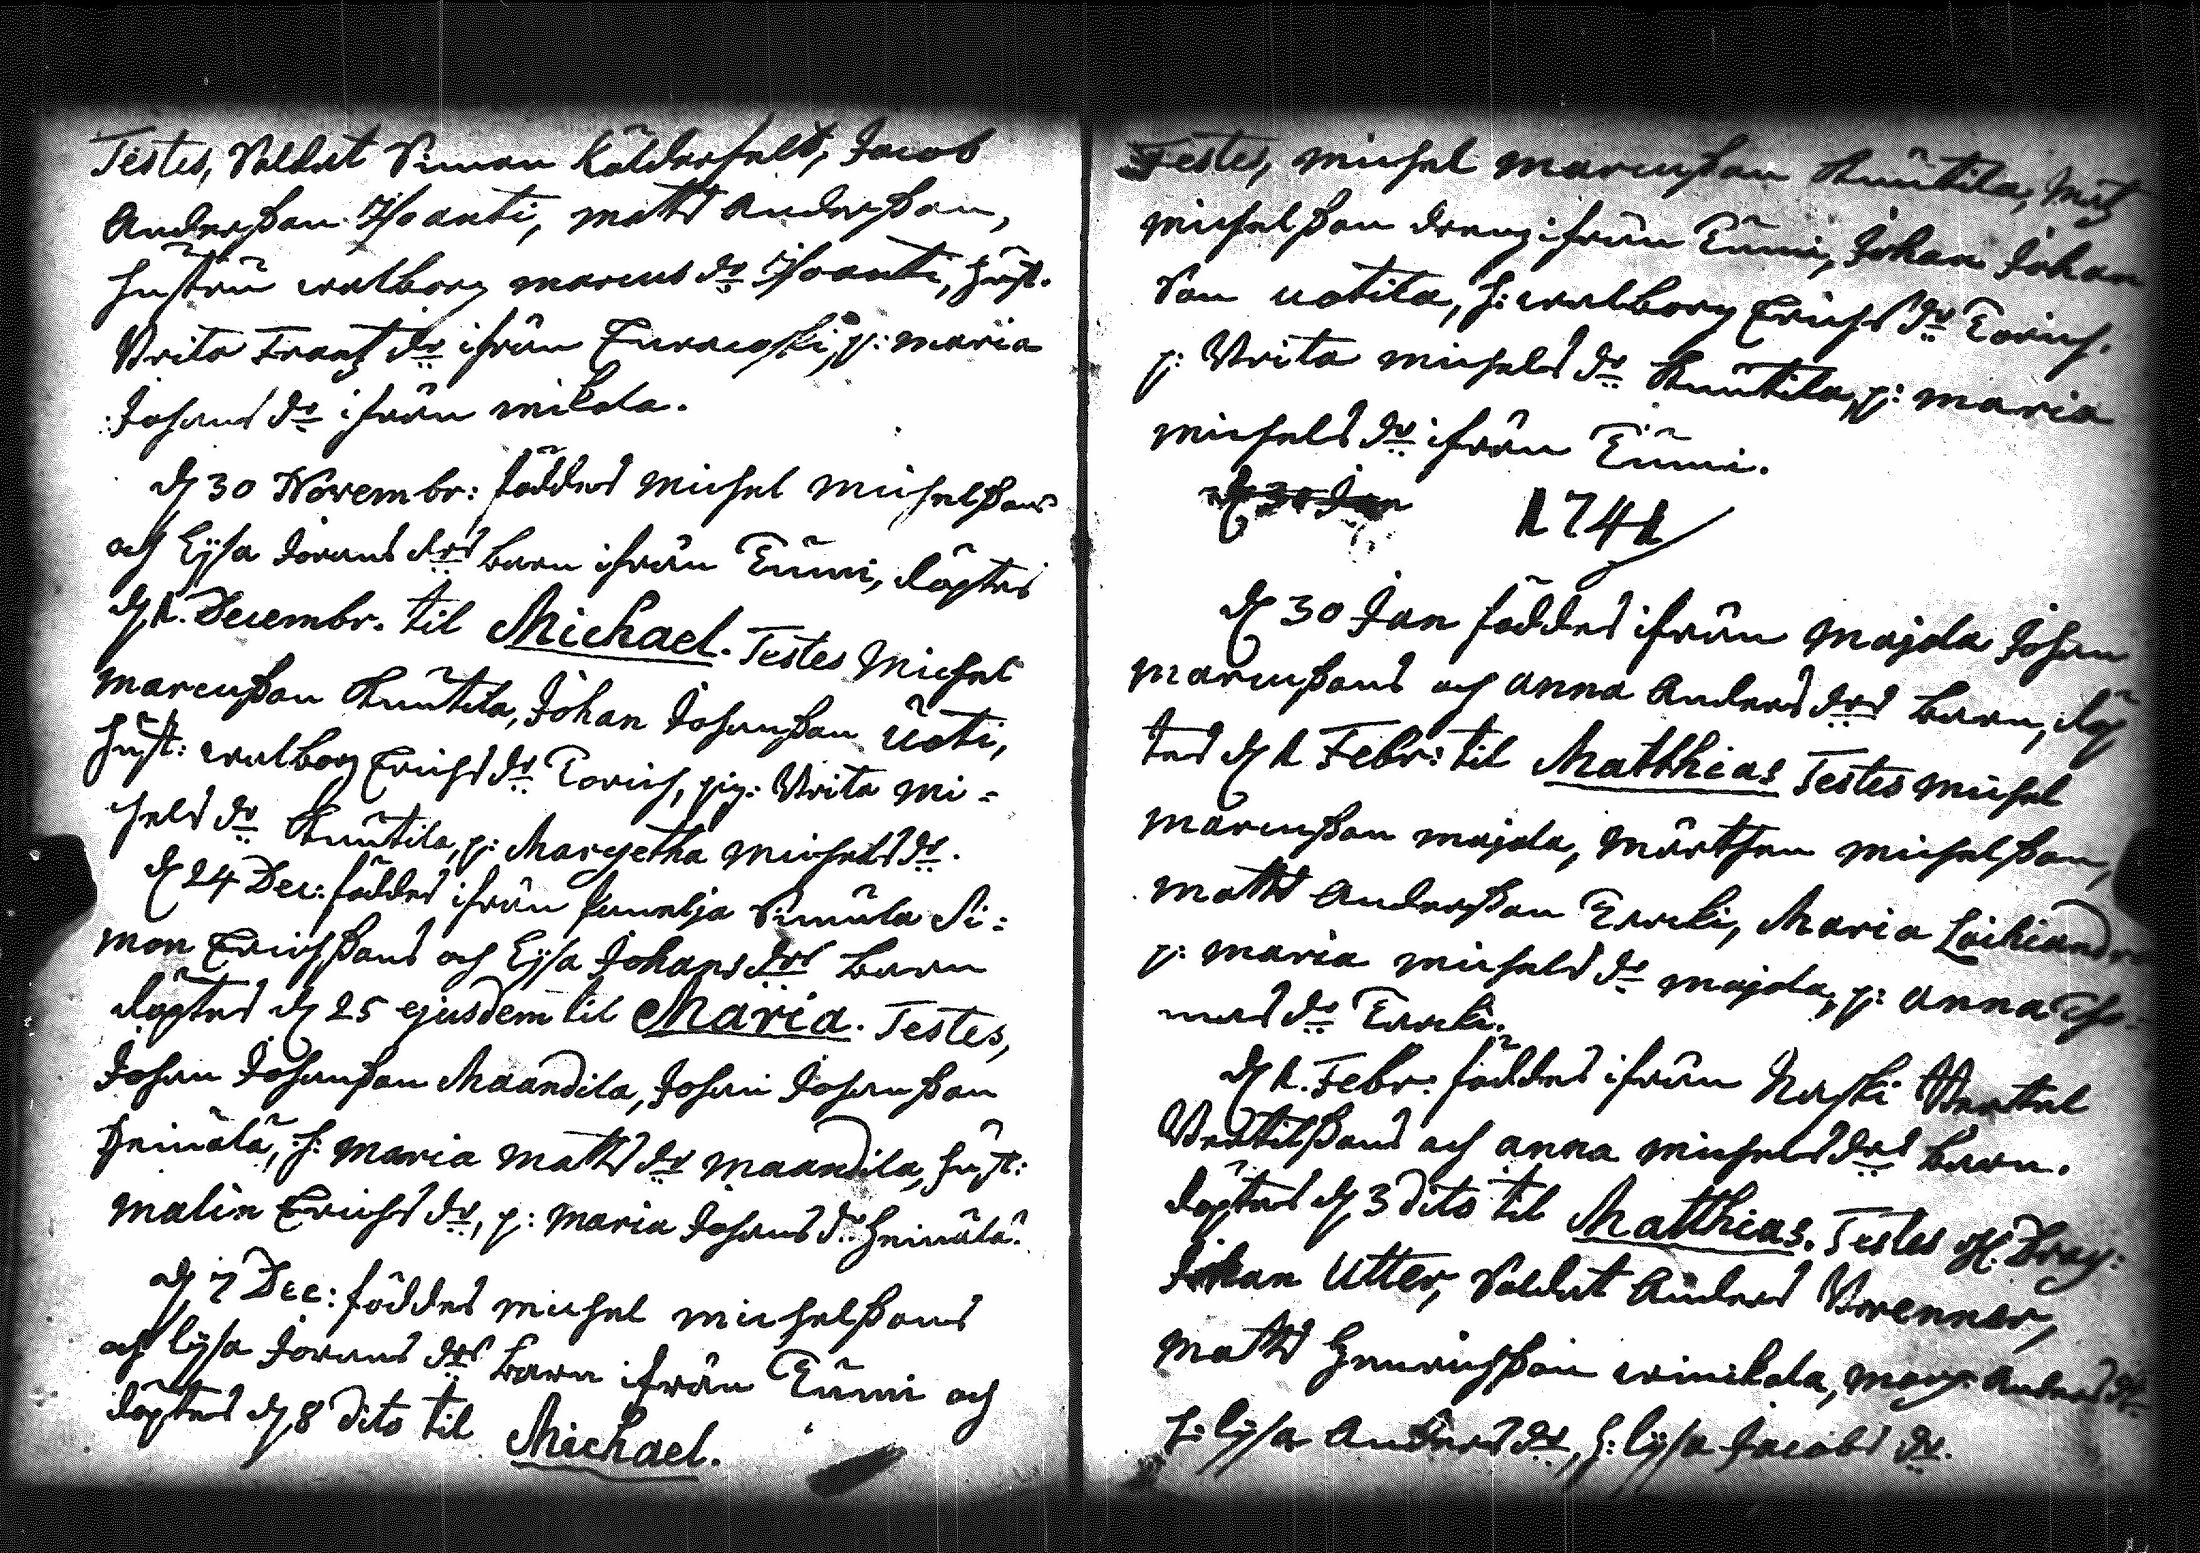 Testes, Soldat Simon Kålderfelt, Jacob
Andersson Isoanti, matts Andersson,
hustru walborg marcus dr Isoanti, hust.
Brita Frantz dr ifrån p: maria
Johans dr ifrån mikola.
d 30 Novembr: föddes michel michelssons
och Lysa Jorans drs barn ifrån Tümi, döptes
d 1. Decembr. til Michael. Testes michel
marcusson Knutila, Johan Johansson Uoti,
hust: walborg Erichs dr Torich, pig: Brita mi=
chels dr Knutila, p: Margetha michels dr.
d 24 Dec: föddes ifrån Punelja Simula Si=
mon Erichssons och Lysa Johans drs barn
döptes d 25 ejusdem til Maria. Testes,
Johan Johansson Maandila, Johan Johansson
Heinälä, h: maria matts dr maandila, hust:
malin Erichs dr, p: maria Johans dr Heinälä.
d 7 Dec: föddes michel michelssons
och lysa Jorans drs barn ifrån Tümi och
döptes d 8 dito til Michael.
Testes, michel marcusson Knutila, Mats
michelsson dreng ifrån Tümi, Johan Johan
Son uotila, h: walborg Erichs dr Torich.
p: Brita michels dr Knutila, p: maria
michels dr ifrån Tümi.
d 30 Jan 1741
d 30 Jan föddes ifrån majola Johan
marcussons och anna Anders drs barn, döp
tes d 1 Febr: til Matthias Testes michel
marcusson majola, mårthen michelsson,
matts Andersson Ercki, Maria
p: maria michels dr majola, p: anna Tho=
mas dr Ercki.
d 1. Febr: föddes ifrån Bertel
Bertilssons och anna michels drs barn.
döptes d 3 dito til Matthias. Testes
Johan Utter, Soldat Anders Brenner,
matts Henrichsson winikala, marg: Anders dr.
h: lysa Anders dr, h: lysa Jacobs dr.